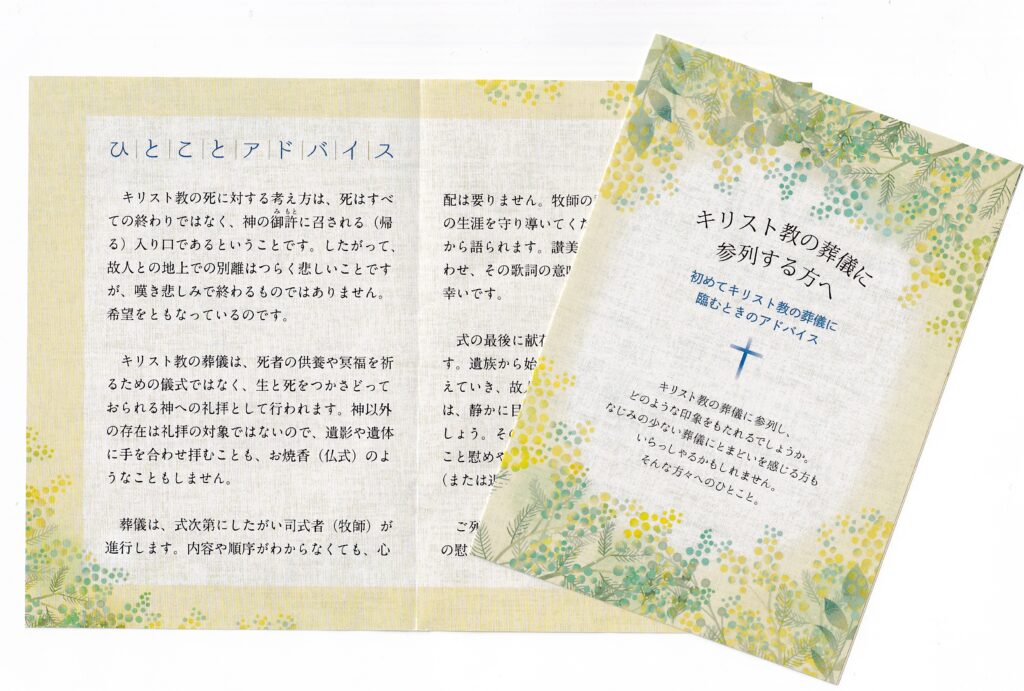 ひとことアドバイス
キリスト教の死に対する考え方は、死はすべ
ての終わりではなく、神の御許に召される（帰
みもと
る）入り口であるということです。したがって、
故人との地上での別離はつらく悲しいことです
が、嘆き悲しみで終わるものではありません。
希望をともなっているのです。
キリスト教の葬儀は、死者の供養や冥福を祈
るための儀式ではなく、生と死をつかさどって
おられる神への礼拝として行われます。神以外
の存在は礼拝の対象ではないので、遺影や遺体
に手を合わせ拝むことも、お焼香（仏式）のよ
うなこともしません。
葬儀は、式次第にしたがい司式者（牧師）が
進行します。内容や順序がわからなくても、心
配は要りません。牧師の
の生涯を守り導いてくだ
から語られます。讃美
わせ、その歌詞の意味
幸いです。
式の最後に献花
す。遺族から始
えていき、故人
は、静かに
しょう。その
こと慰めや
（または
ご列
の慰
キリスト教の葬儀に
参列する方へ
初めてキリスト教の葬儀に
臨むときのアドバイス
キリスト教の葬儀に参列し、
どのような印象をもたれるでしょうか。
なじみの少ない葬儀にとまどいを感じる方も
いらっしゃるかもしれません。
そんな方々へのひとこと。